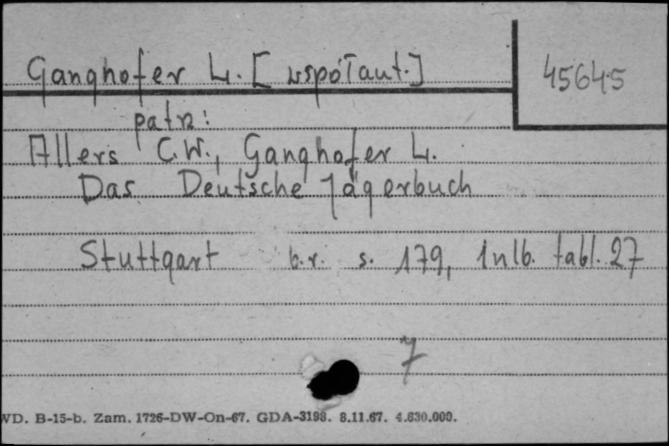 Ganghofer L. [współaut.]
45645
patrz:
Allers C.W., Ganghofer L.
Das Deutsche Jägerbuch
Stuttgart b.r. s. 179, 1nlb. tabl. 27
7
WD. B-15-b. Zam. 1726-DW-On-67. GDA-3198. 8.11.67. 4.630.000.